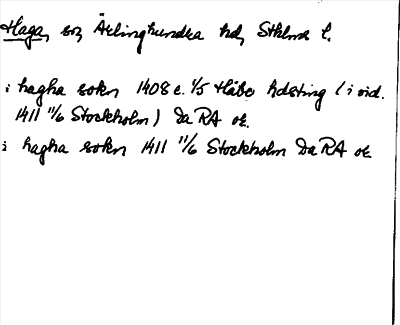 Haga, sn, Ärlinghundra hd, Sthlms l.
i hagha sokn 1408 c. 1/5 Håbo hdsting (i vid.
1411 11/6 Stockholm) Da RA or.
i hagha sokn 1411 11/6 Stockholm Da RA or